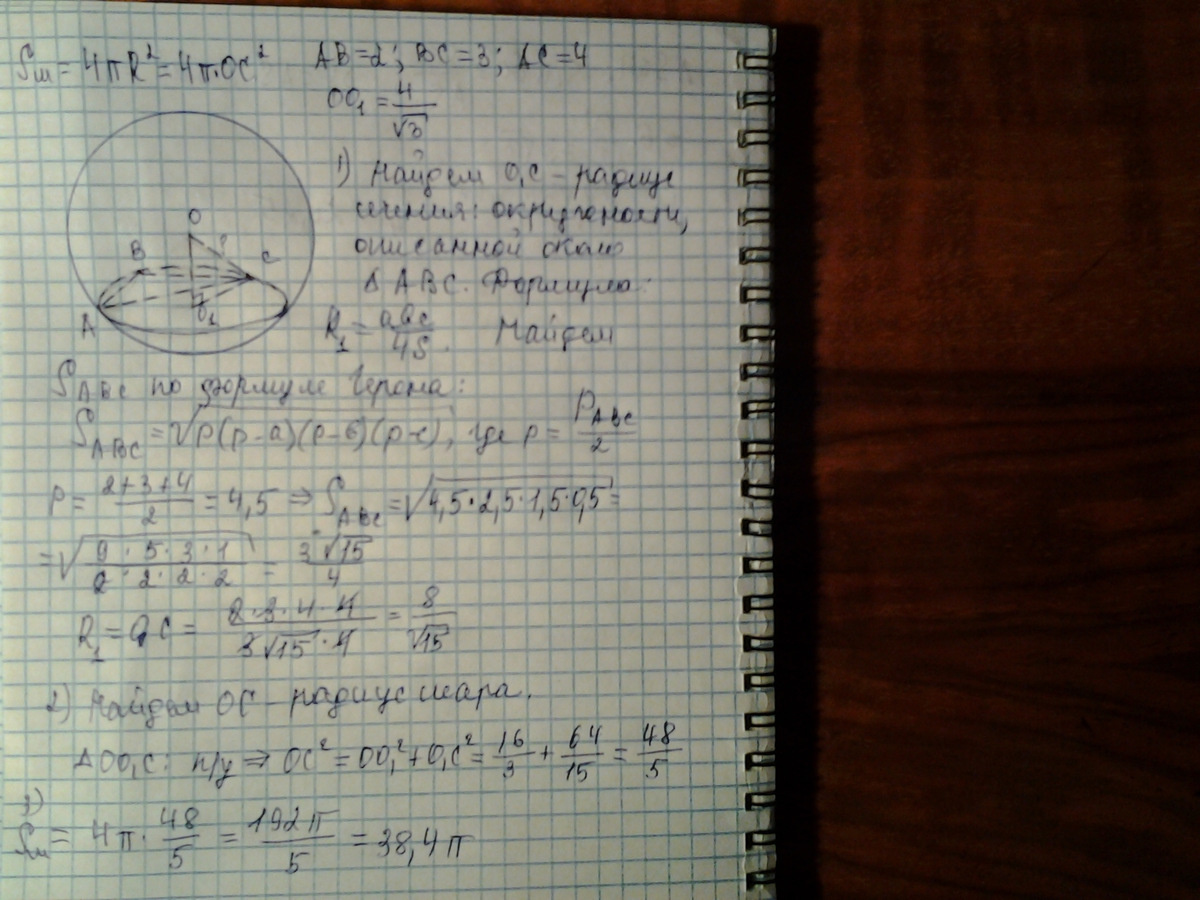 Sш = 4πR² = 4π·OC²
AB=2; BC=3; AC=4
OO₁ = 4/√3
1) Найдем O₁C – радиус
сечения: окружности,
описанной около
Δ ABC. Формула:
R₁ = abc/4S. Найдем
S ABC по формуле Герона:
S ABC = √p(p-a)(p-b)(p-c), где p = P ABC/2
p = (2+3+4)/2 = 4,5 ⇒ S ABC = √4,5·2,5·1,5·0,5 =
= √(9·5·3·1)/(2·2·2·2) = 3√15/4
R₁ = O₁C = (2·3·4·4)/(3√15·4) = 8/√15
2) Найдем OC – радиус шара.
ΔOO₁C: п/у ⇒ OC² = OO₁² + O₁C² = 16/3 + 64/15 = 48/5
3)
Sш = 4π · 48/5 = 192π/5 = 38,4π
O
?
B
C
A
O₁